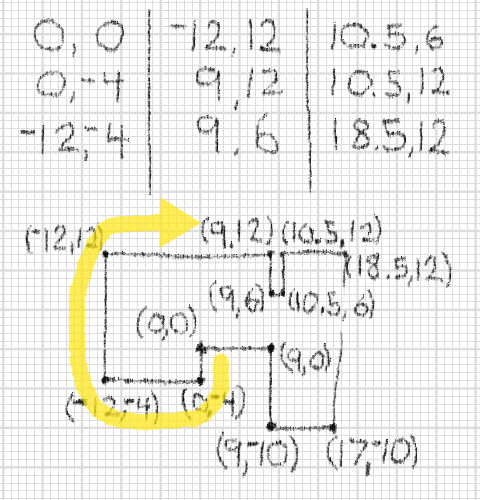 0, 0 | ⁻12, 12 | 10.5, 6
0, ⁻4 | 9, 12 | 10.5, 12
⁻12, ⁻4 | 9, 6 | 18.5, 12
(⁻12, 12) (9, 12) (10.5, 12)
(18.5, 12)
(9, 6) (10.5, 6)
(0, 0)
(9, 0)
(⁻12, ⁻4) (0, ⁻4)
(9, ⁻10) (17, ⁻10)